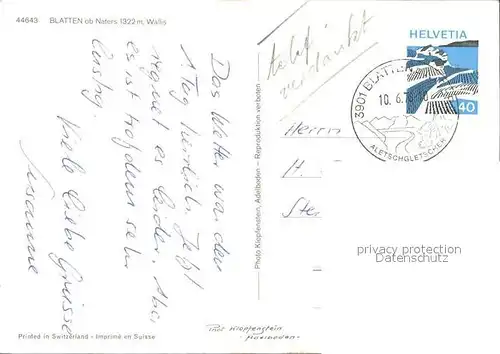 44643 BLATTEN ob Naters 1322 m, Wallis
Das Wetter war den
1. Tag herrlich. Jetzt
regnet es leider. Aber
es ist trotzdem sehr
lustig.
Viele liebe Grüsse
Susanne
Printed in Switzerland - Imprimé en Suisse
Photo Klopfenstein, Adelboden – Reproduktion verboten
verdankt
HELVETIA
40
3901 BLATTEN
10.6.78
ALETSCHGLETSCHER
Herrn
H.
Ste
privacy protection
Datenschutz
Phot Klopfenstein
Adelboden